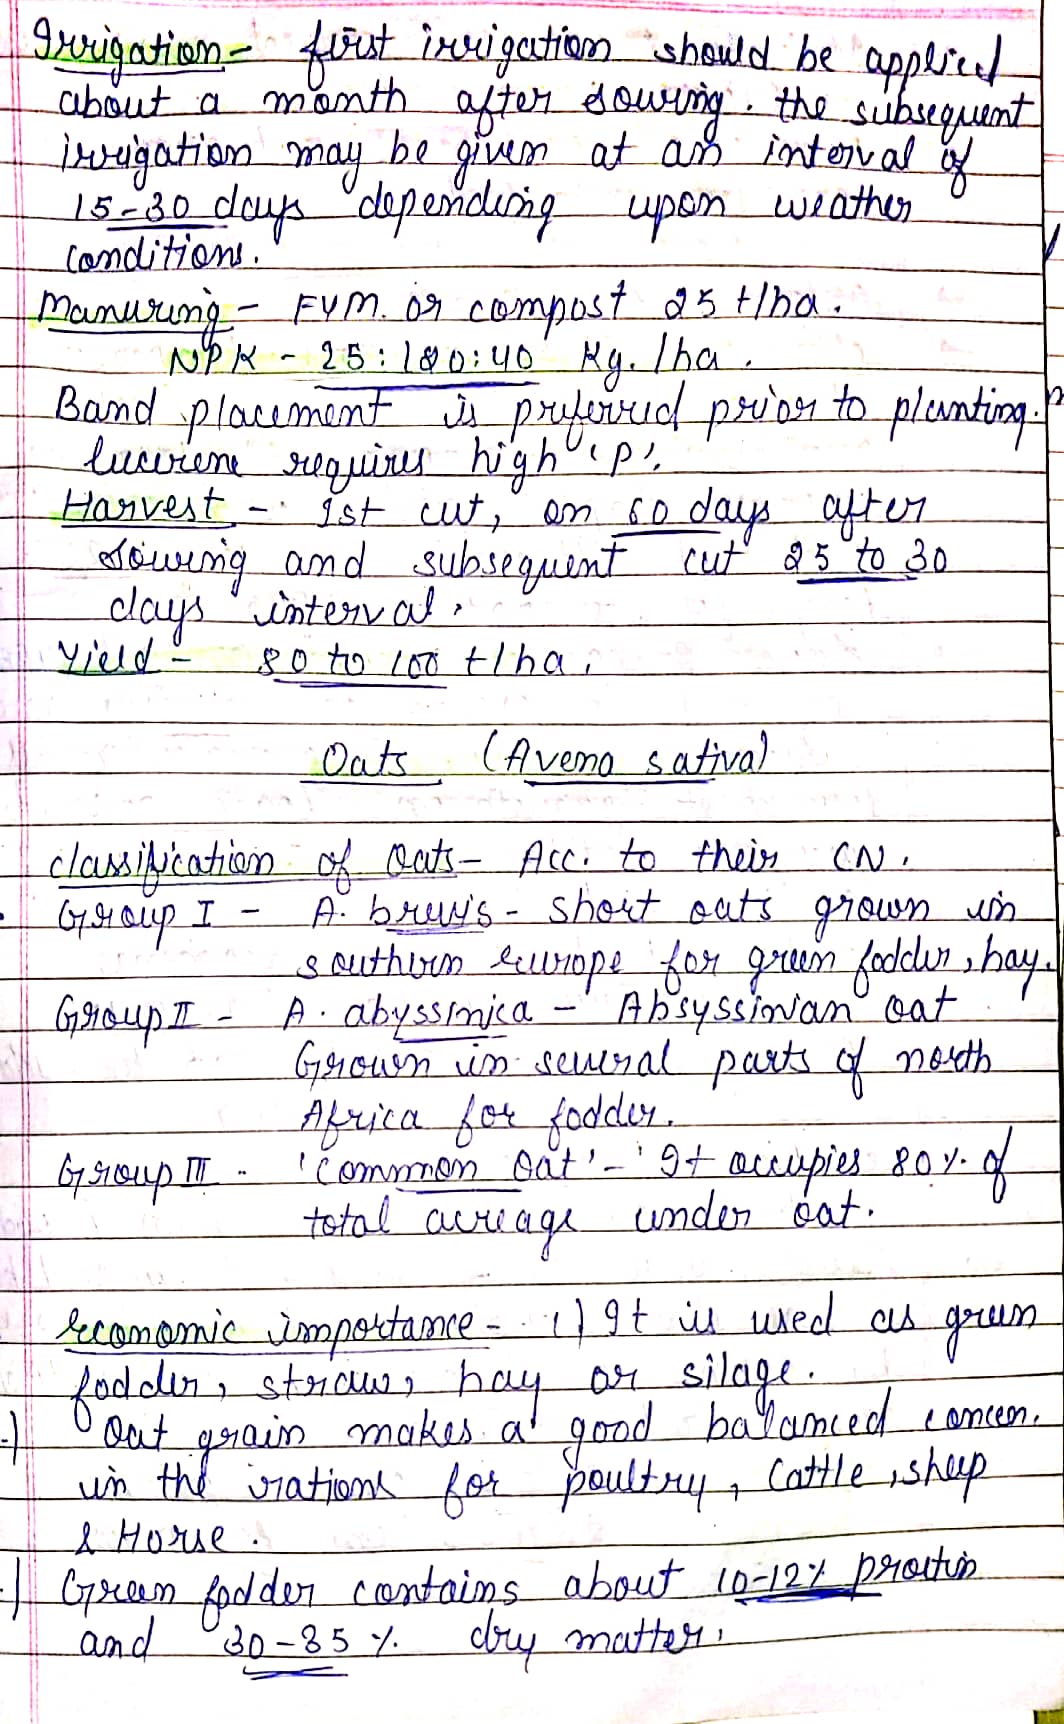 Irrigation - first irrigation should be applied
about a month after sowing. the subsequent
irrigation may be given at an interval of
15-30 days depending upon weather
conditions.
Manuring - FYM. or compost 25 t/ha.
NPK - 25:120:40 Kg./ha.
Band placement is preferred prior to planting.
lucerene requires high 'P'.
Harvest - 1st cut, on 60 days after
sowing and subsequent cut 25 to 30
days interval.
Yield - 80 to 100 t/ha.
Oats (Avena sativa)
classification of Oats - Acc. to their CN.
Group I - A. brevis - short oats grown in
southern europe for green fodder, hay.
Group II - A. abyssinica - Absyssinian oat
Grown in several parts of north
Africa for fodder.
Group III - 'Common Oat' - It occupies 80% of
total acreage under oat.
Economic importance - 1) It is used as green
fodder, straw, hay or silage.
-) Oat grain makes a good balanced concen.
in the rations for poultry, Cattle, sheep
& Horse.
-) Green fodder contains about 10-12% protein
and 30-35% dry matter.